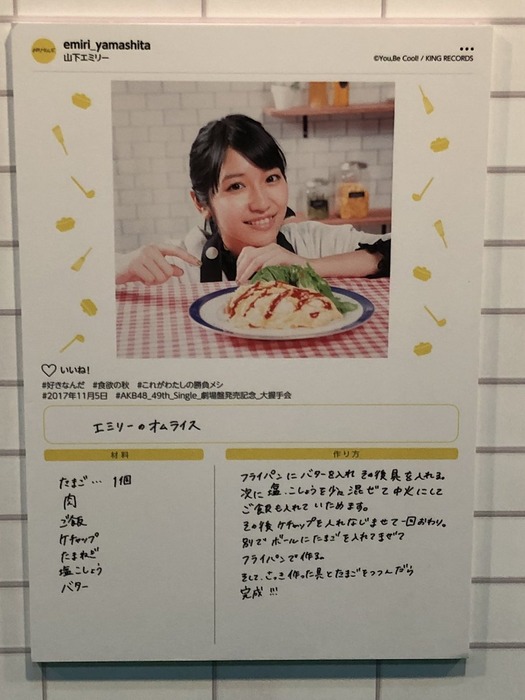 emiri_yamashita
山下エミリー
©You, Be Cool! / KING RECORDS
いいね!
#好きなんだ #食欲の秋 #これがわたしの勝負メシ
#2017年11月5日 #AKB48_49th_Single_劇場盤発売記念_大握手会
エミリーのオムライス
材料
たまご… 1個
肉
ご飯
ケチャップ
たまねぎ
塩こしょう
バター
作り方
フライパンにバターを入れ その後具を入れる。
次に塩、こしょうを少々混ぜて中火にして
ご飯も入れていためます。
その後ケチャップを入れなじませて一回おわり。
別でボールにたまごを入れてまぜて
フライパンで作る。
そして、さっき作った具とたまごをつつんだら
完成!!!